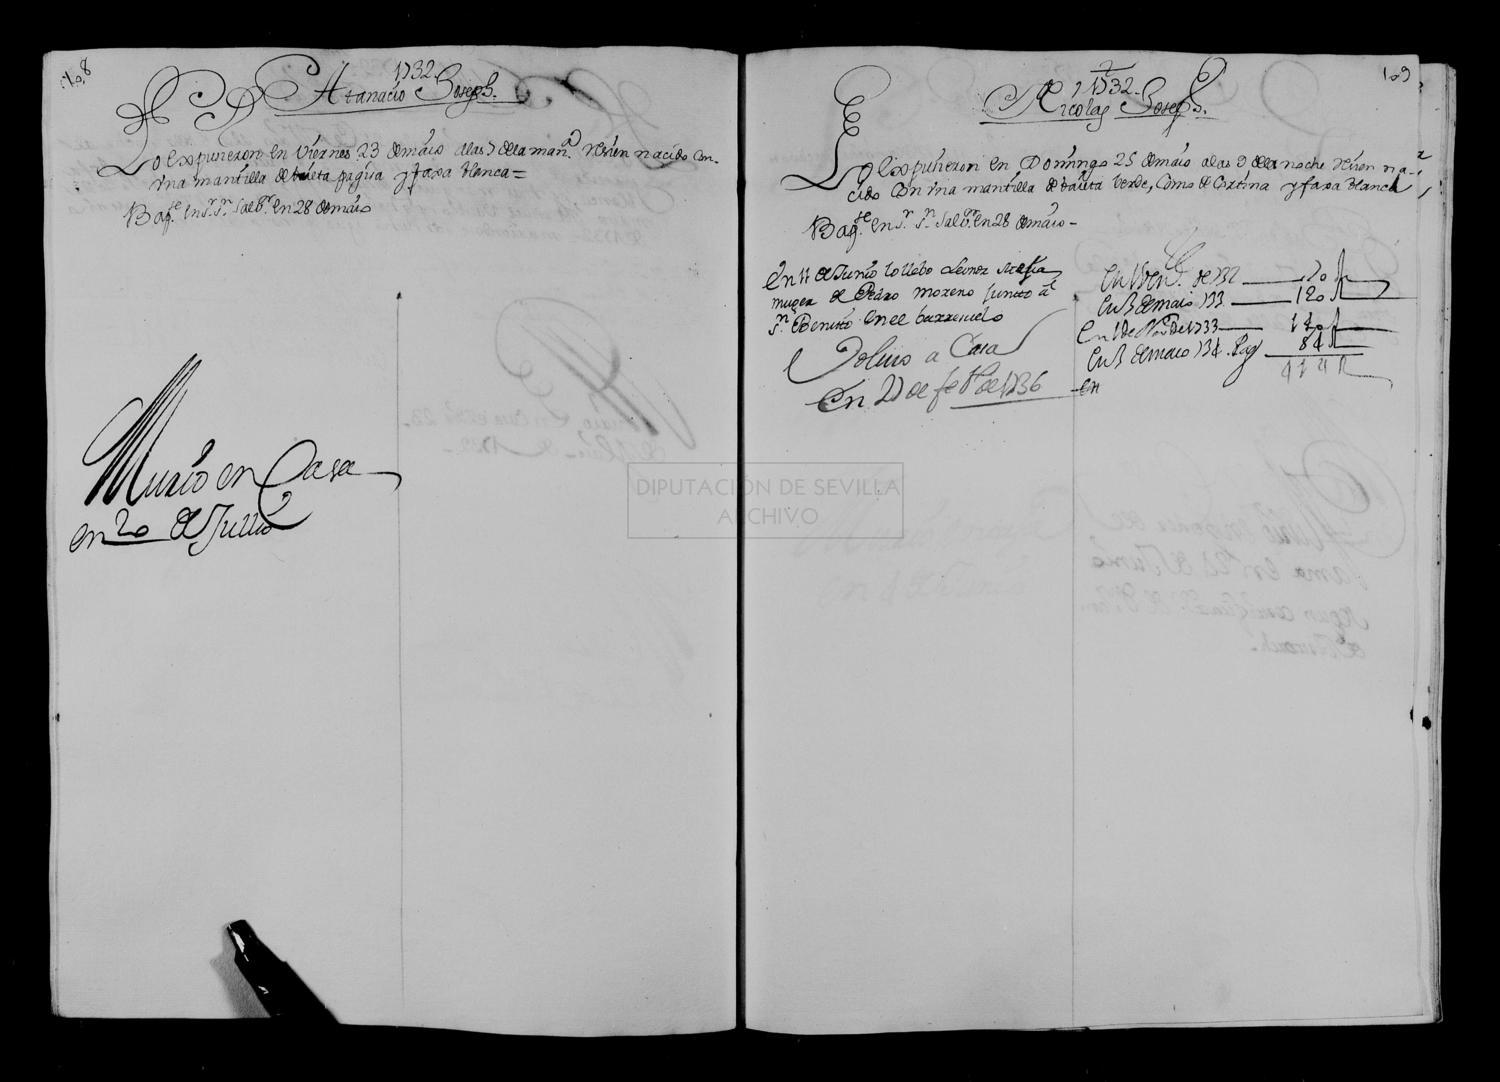 108
1732
Atanacio Joseph.
Lo expusieron en Viernes 23 de maio a las 5 de la mañ.ª resien nacido con
vna mantilla de baieta pagisa y faxa blanca =
Baq.se en S.r S.n Salb.r en 28 de maio
Murio en Casa
en 20 de Jullio
109
1732.
Nicolas Joseph.
Lo expusieron en Domingo 25 de maio a las 9 de la noche resien na-
cido con vna mantilla de baieta verde, como de Cortina y faxa blanca
Baq.se en S.r S.n Salb.r en 28 de maio -
En 11 de Junio lo llebo Leonor
muger de Pedro moreno junto a
S.n Benito en el barresuelo
Bolvio a Casa
En 27 de feb.o de 1736
de 732 120
En 3 de maio 733 120
En 1 de Nov.e de 1733
En 3 de maio 734. Pag 84
en
DIPUTACIÓN DE SEVILLA
ARCHIVO